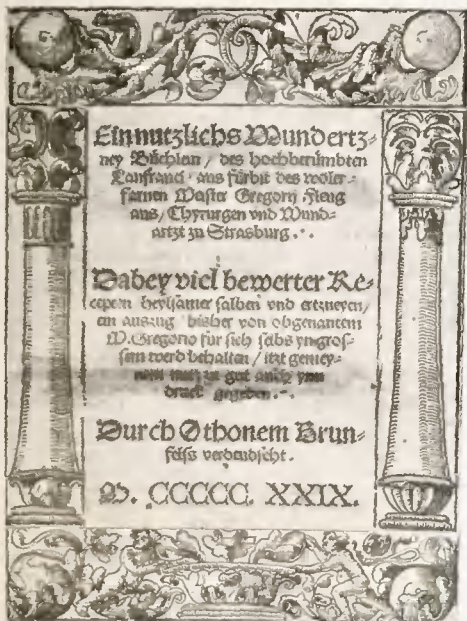 Ein nutzlichs Wundertz⸗
ney Büchlein / des hochberümbten
Lanfranci / aus fürbit des woler⸗
farnen Maister Gregorij Fleug
aus / Chyrurgen vnd Wund⸗
artzt zu Strasburg .·.
Dabey viel bewerter Re⸗
cepten heylsamer salben vnd ertzneyen /
ein auszug bisher von obgenantem
M. Gregorio für sich selbs yn gros⸗
sem werd behalten / itzt gemey⸗
nem nutz zu gut auch ynn
druck gegeben .·.
Durch Othonem Brun⸗
felss verdeudscht .
M. CCCCC. XXIX.